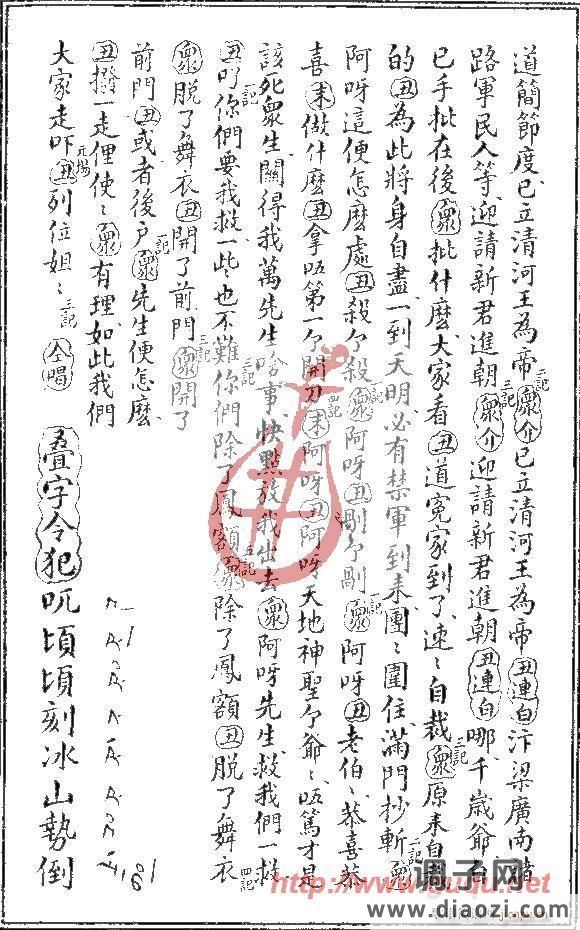 道簡節度已立清河王為帝三記衆介已立清河王為帝丑連白汴梁廣南諸
路軍民人等迎請新君進朝三記衆介迎請新君進朝丑連白哪千歲爺台
已手批在後衆批什麽大家看丑道冤家到了速〻自裁三記衆原来自裁
的丑為此將身自盡一到天明必有禁軍到来團〻圍住滿門抄斬二記衆
阿呀這便怎麽處丑殺介殺衆阿呀丑剮介剮衆阿呀丑老伯〻恭喜恭
喜末做什麽丑拿唔第一介開刀末阿呀丑阿呀天地神聖介爺〻唔篤才是
該死衆生關得我萬先生啥事快點放我出去衆阿呀先生救我們一救
丑叮你們要我救一些也不難你們除了鳳額衆除了鳳額丑脱了舞衣四記
衆脱了舞衣丑開了前門衆開了
前門丑或者後户衆先生便怎麽
丑撥一走俚使〻衆有理如此我們
大家走吓元場丑列位姐〻三記仝唱
叠字令犯
吭頃頃刻冰山勢倒
http://www.guqu.net
调子网
www.diaozi.com